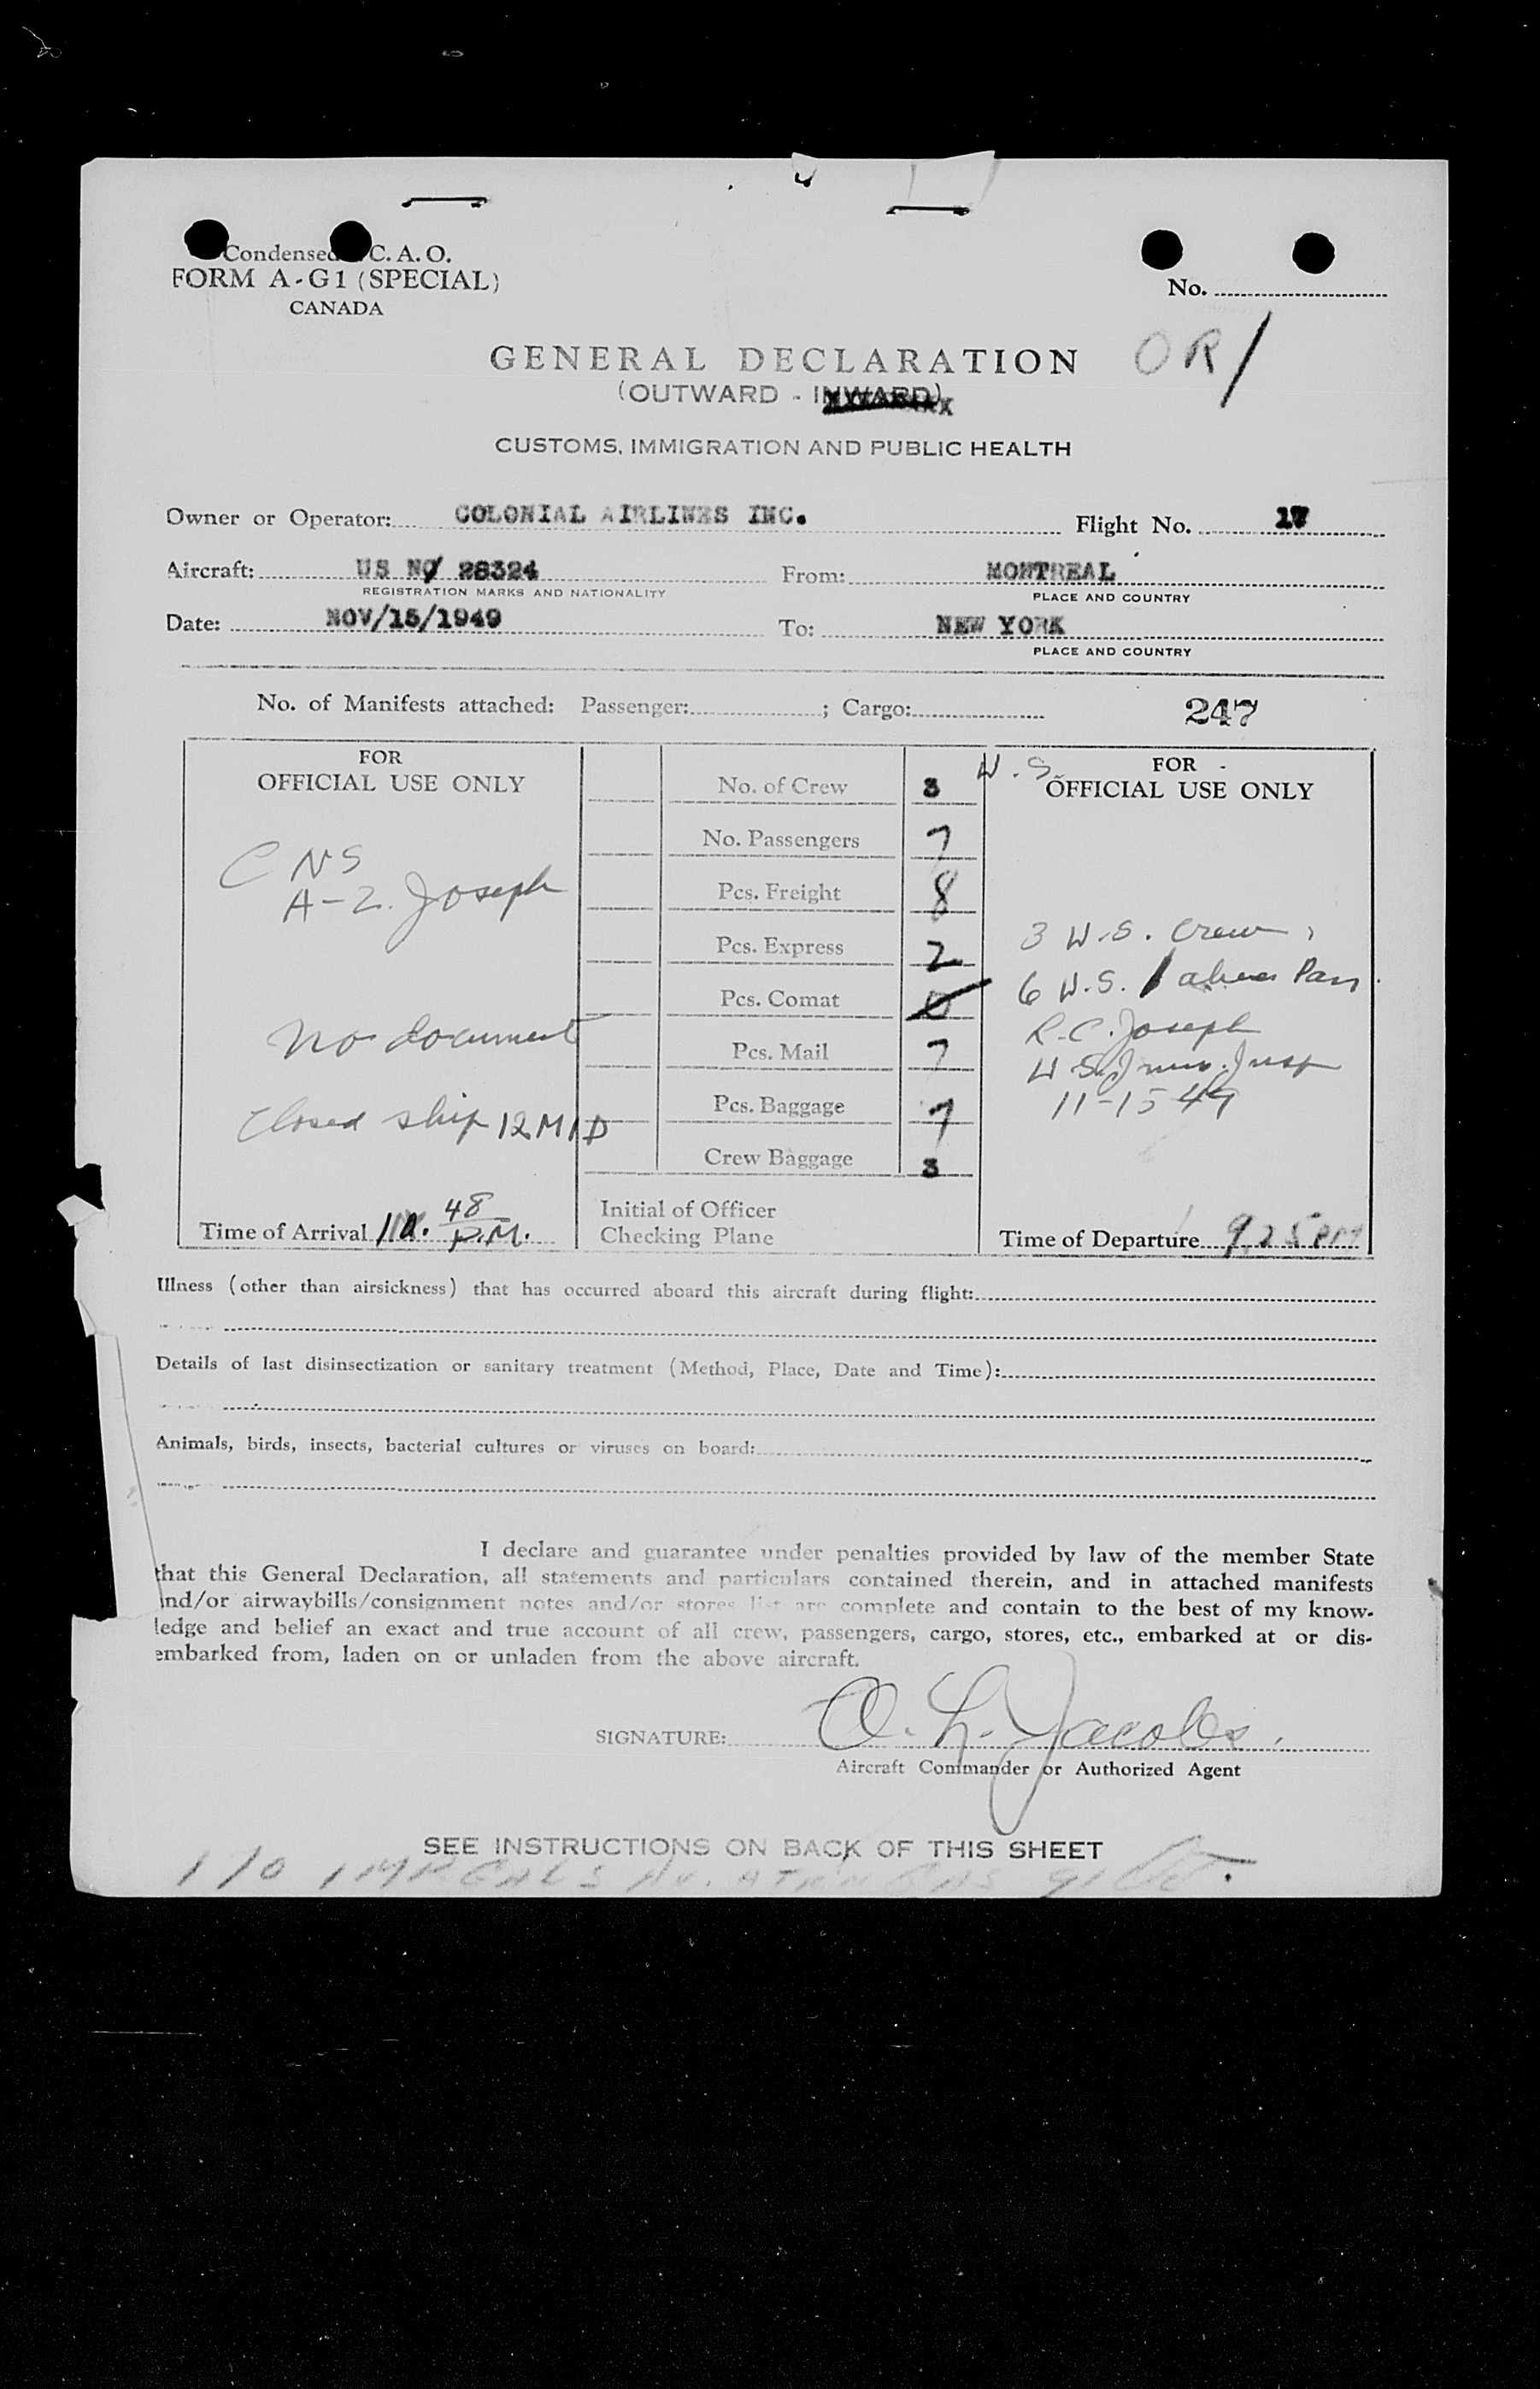 Condensed C. A. O.
FORM A-G1 (SPECIAL)
CANADA
No.
OR/
GENERAL DECLARATION
(OUTWARD - INWARD)
CUSTOMS, IMMIGRATION AND PUBLIC HEALTH
Owner or Operator: COLONIAL AIRLINES INC. Flight No. 17
Aircraft: US NO/ 28324 From: MONTREAL
REGISTRATION MARKS AND NATIONALITY PLACE AND COUNTRY
Date: NOV/15/1949 To: NEW YORK
PLACE AND COUNTRY
No. of Manifests attached: Passenger: ; Cargo: 247
FOR
OFFICIAL USE ONLY
CNS
A-2. Joseph
No document
Closed ship 12 MID
Time of Arrival 48 P.M.
No. of Crew 3
No. Passengers 7
Pcs. Freight 8
Pcs. Express 2
Pcs. Comat 0
Pcs. Mail 7
Pcs. Baggage 7
Crew Baggage 3
Initial of Officer
Checking Plane
U.S.
FOR
OFFICIAL USE ONLY
3 U.S. Crew,
6 U.S. 1 alien Pass.
R.C. Joseph
U.S. Imm. Insp
11-15-49
Time of Departure 9.25 PM
Illness (other than airsickness) that has occurred aboard this aircraft during flight:
Details of last disinsectization or sanitary treatment (Method, Place, Date and Time):
Animals, birds, insects, bacterial cultures or viruses on board:
I declare and guarantee under penalties provided by law of the member State
that this General Declaration, all statements and particulars contained therein, and in attached manifests
and/or airwaybills/consignment notes and/or stores list are complete and contain to the best of my know-
ledge and belief an exact and true account of all crew, passengers, cargo, stores, etc., embarked at or dis-
embarked from, laden on or unladen from the above aircraft.
SIGNATURE: O. L. Jacobs.
Aircraft Commander or Authorized Agent
SEE INSTRUCTIONS ON BACK OF THIS SHEET